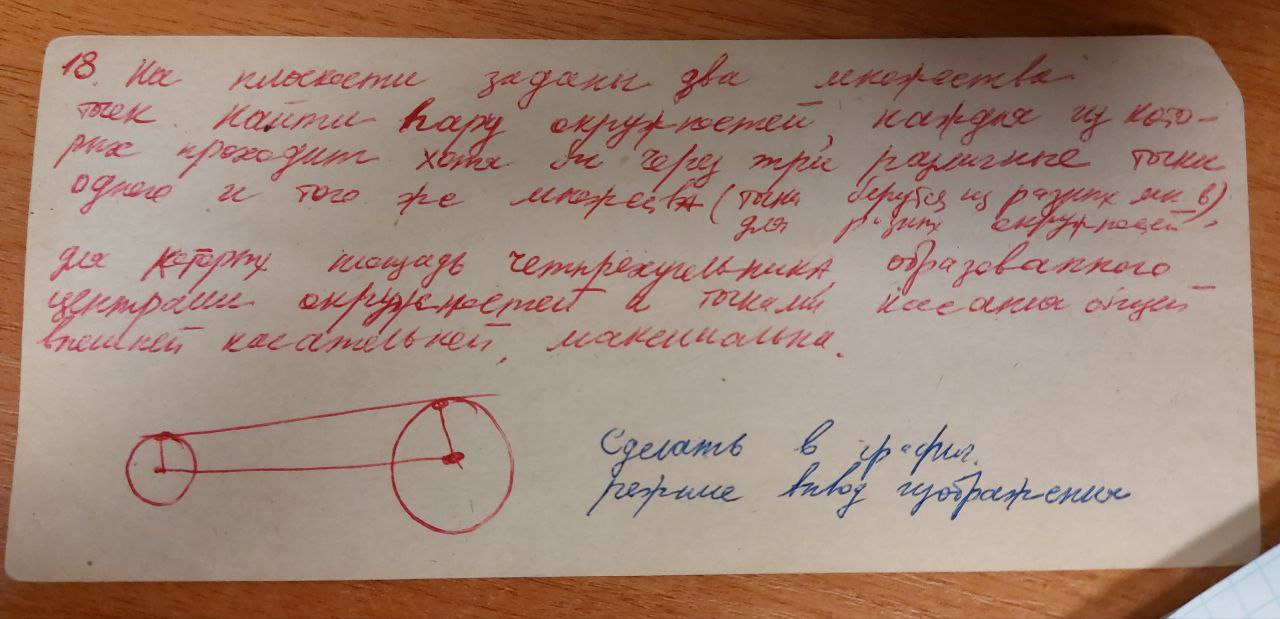 18. На плоскости заданы два множества
точек Найти пару окружностей, каждая из кото-
рых проходит хотя бы через три различные точки
одного и того же множества (точки берутся из разных мн-в)
для разных окружностей,
для которых площадь четырехугольника образованного
центрами окружностей и точками касания общей
внешней касательной, максимальна.
Сделать в график.
режиме вывод изображения